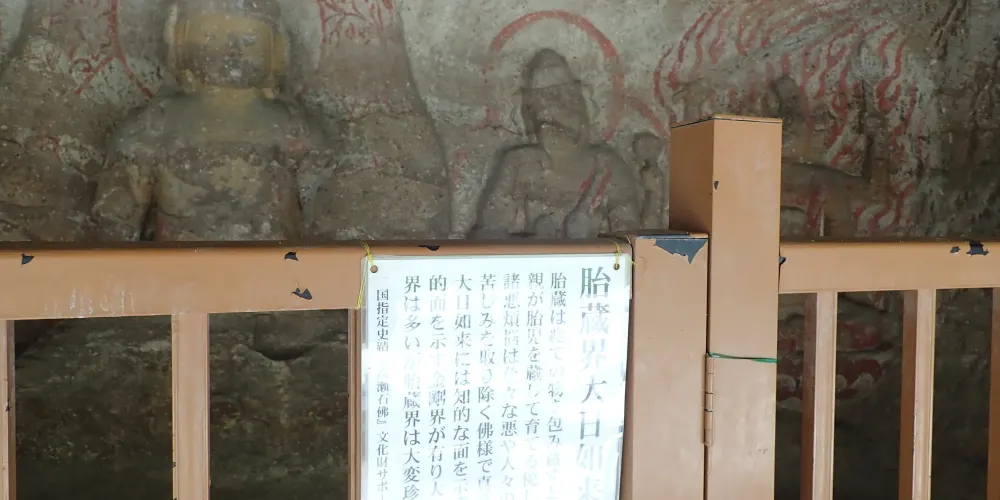 胎蔵界大日如来
胎蔵は
親が胎児を蔵して育てる
諸悪煩悩は な悪や人々
苦しみを取り除く佛様で真
大日如来には知的な面を示
的面を示す金剛界が有り大
界は多いが胎蔵界は大変珍
国指定史蹟 瀬石佛』文化財サポー